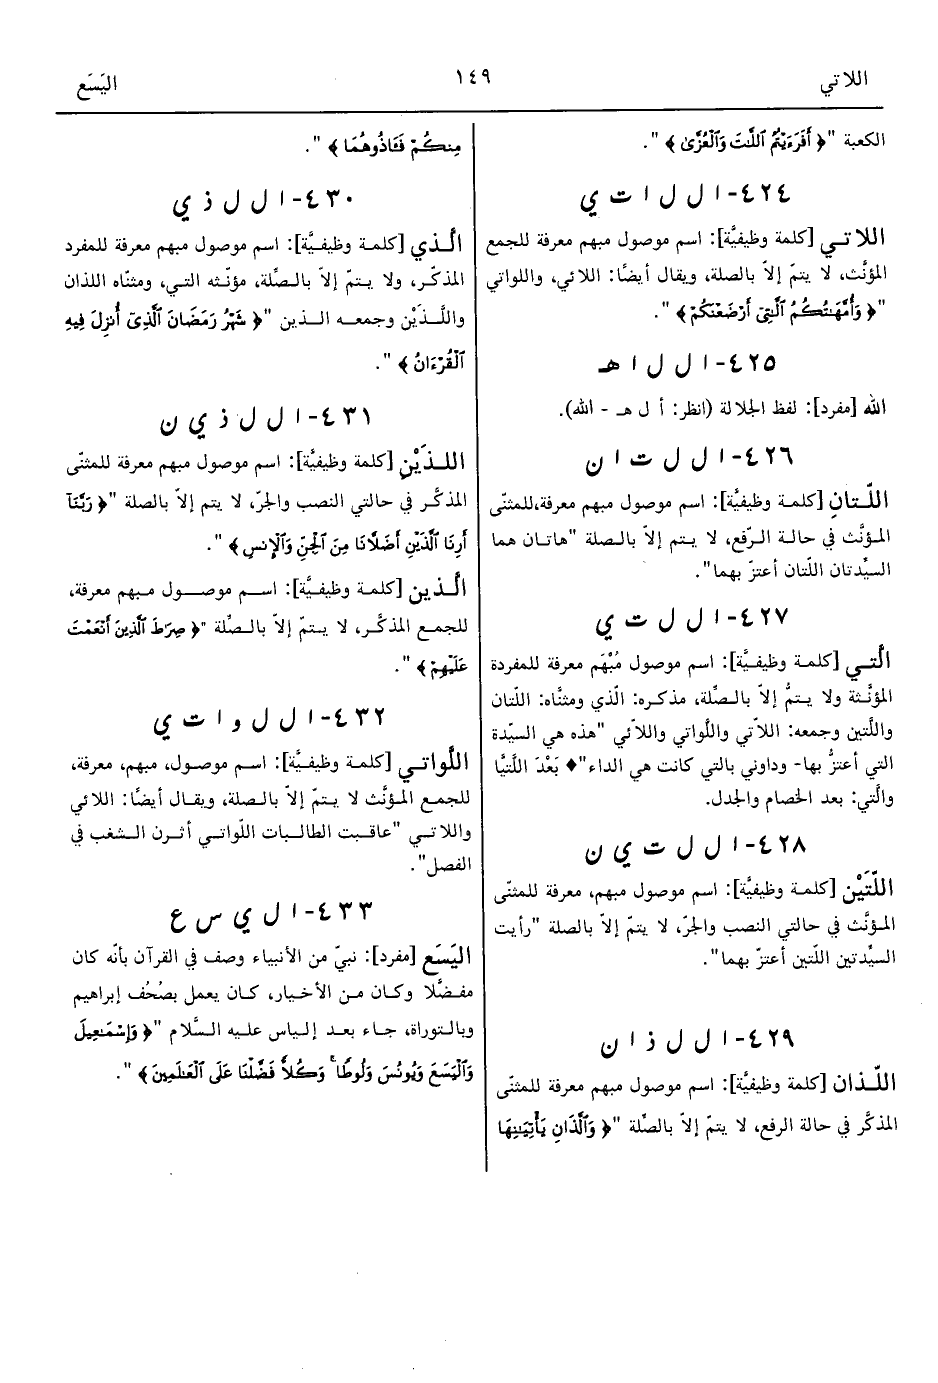 اللاتي
١٤٩
اليَسَع
الكعبة "﴿ أَفَرَءَيْتُمُ ٱللَّٰتَ وَٱلْعُزَّىٰ ﴾".
٤٢٤- ا ل ل ا ت ي
اللاتي [كلمة وظيفيَّة]: اسم موصول مبهم معرفة للجمع
المؤنَّث، لا يتمّ إلاّ بالصلة، ويقال أيضًا: اللائي، واللواتي
"﴿ وَأُمَّهَٰتُكُمُ ٱلَّٰتِىٓ أَرْضَعْنَكُمْ ﴾".
٤٢٥- ا ل ل ا هـ
الله [مفرد]: لفظ الجلالة (انظر: أ ل هـ - الله).
٤٢٦- ا ل ل ت ا ن
اللّتانِ [كلمة وظيفيَّة]: اسم موصول مبهم معرفة،للمثنّى
المؤنَّث في حالة الرّفع، لا يتم إلاّ بالصلة "هاتان هما
السيِّدتان اللّتان أعتزّ بهما".
٤٢٧- ا ل ل ت ي
الّتي [كلمة وظيفيَّة]: اسم موصول مُبْهَم معرفة للمفردة
المؤنَّثة ولا يتمُّ إلاّ بالصِّلة، مذكره: الّذي ومثنَّاه: اللّتان
واللَّتين وجمعه: اللاّتي واللَّواتي واللاّئي "هذه هي السيّدة
التي أعتزُّ بها- وداوني بالتي كانت هي الداء"♦ بَعْدَ اللَّتيَّا
والَّتي: بعد الخصام والجدل.
٤٢٨- ا ل ل ت ي ن
اللّتَيْن [كلمة وظيفيَّة]: اسم موصول مبهم، معرفة للمثنّى
المؤنَّث في حالتي النصب والجرّ، لا يتمّ إلاّ بالصلة "رأيت
السيِّدتين اللّتين أعتزّ بهما".
٤٢٩- ا ل ل ذ ا ن
اللّذان [كلمة وظيفيَّة]: اسم موصول مبهم معرفة للمثنّى
المذكَّر في حالة الرفع، لا يتمّ إلاّ بالصِّلة "﴿ وَٱلَّذَانِ يَأْتِيَٰنِهَا
مِنكُمْ فَـَٔاذُوهُمَا ﴾".
٤٣٠- ا ل ل ذ ي
الّذي [كلمة وظيفيَّة]: اسم موصول مبهم معرفة للمفرد
المذكّر، ولا يتمّ إلاّ بالصِّلة، مؤنّثه التي، ومثنّاه اللذان
واللَّذَيْن وجمعه الذين "﴿ شَهْرُ رَمَضَانَ ٱلَّذِىٓ أُنزِلَ فِيهِ
ٱلْقُرْءَانُ ﴾".
٤٣١- ا ل ل ذ ي ن
اللذَيْنِ [كلمة وظيفيَّة]: اسم موصول مبهم معرفة للمثنّى
المذكَّر في حالتي النصب والجرّ، لا يتم إلاّ بالصلة "﴿ رَبَّنَآ
أَرِنَا ٱلَّذَيْنِ أَضَلَّانَا مِنَ ٱلْجِنِّ وَٱلْإِنسِ ﴾".
الّذين [كلمة وظيفيَّة]: اسم موصول مبهم معرفة،
للجمع المذكَّر، لا يتمّ إلاّ بالصِّلة "﴿ صِرَٰطَ ٱلَّذِينَ أَنْعَمْتَ
عَلَيْهِمْ ﴾".
٤٣٢- ا ل ل و ا ت ي
اللَّواتي [كلمة وظيفيَّة]: اسم موصول، مبهم، معرفة،
للجمع المؤنَّث لا يتمّ إلاّ بالصلة، ويقال أيضًا: اللائي
واللاتي "عاقبت الطالبات اللّواتي أثرن الشغب في
الفصل".
٤٣٣- ا ل ي س ع
اليَسَع [مفرد]: نبيّ من الأنبياء وصف في القرآن بأنّه كان
مفضَّلا وكان من الأخيار، كان يعمل بصُحُف إبراهيم
وبالتوراة، جاء بعد إلياس عليه السَّلام "﴿ وَإِسْمَٰعِيلَ
وَٱلْيَسَعَ وَيُونُسَ وَلُوطًا ۚ وَكُلًّا فَضَّلْنَا عَلَى ٱلْعَٰلَمِينَ ﴾".